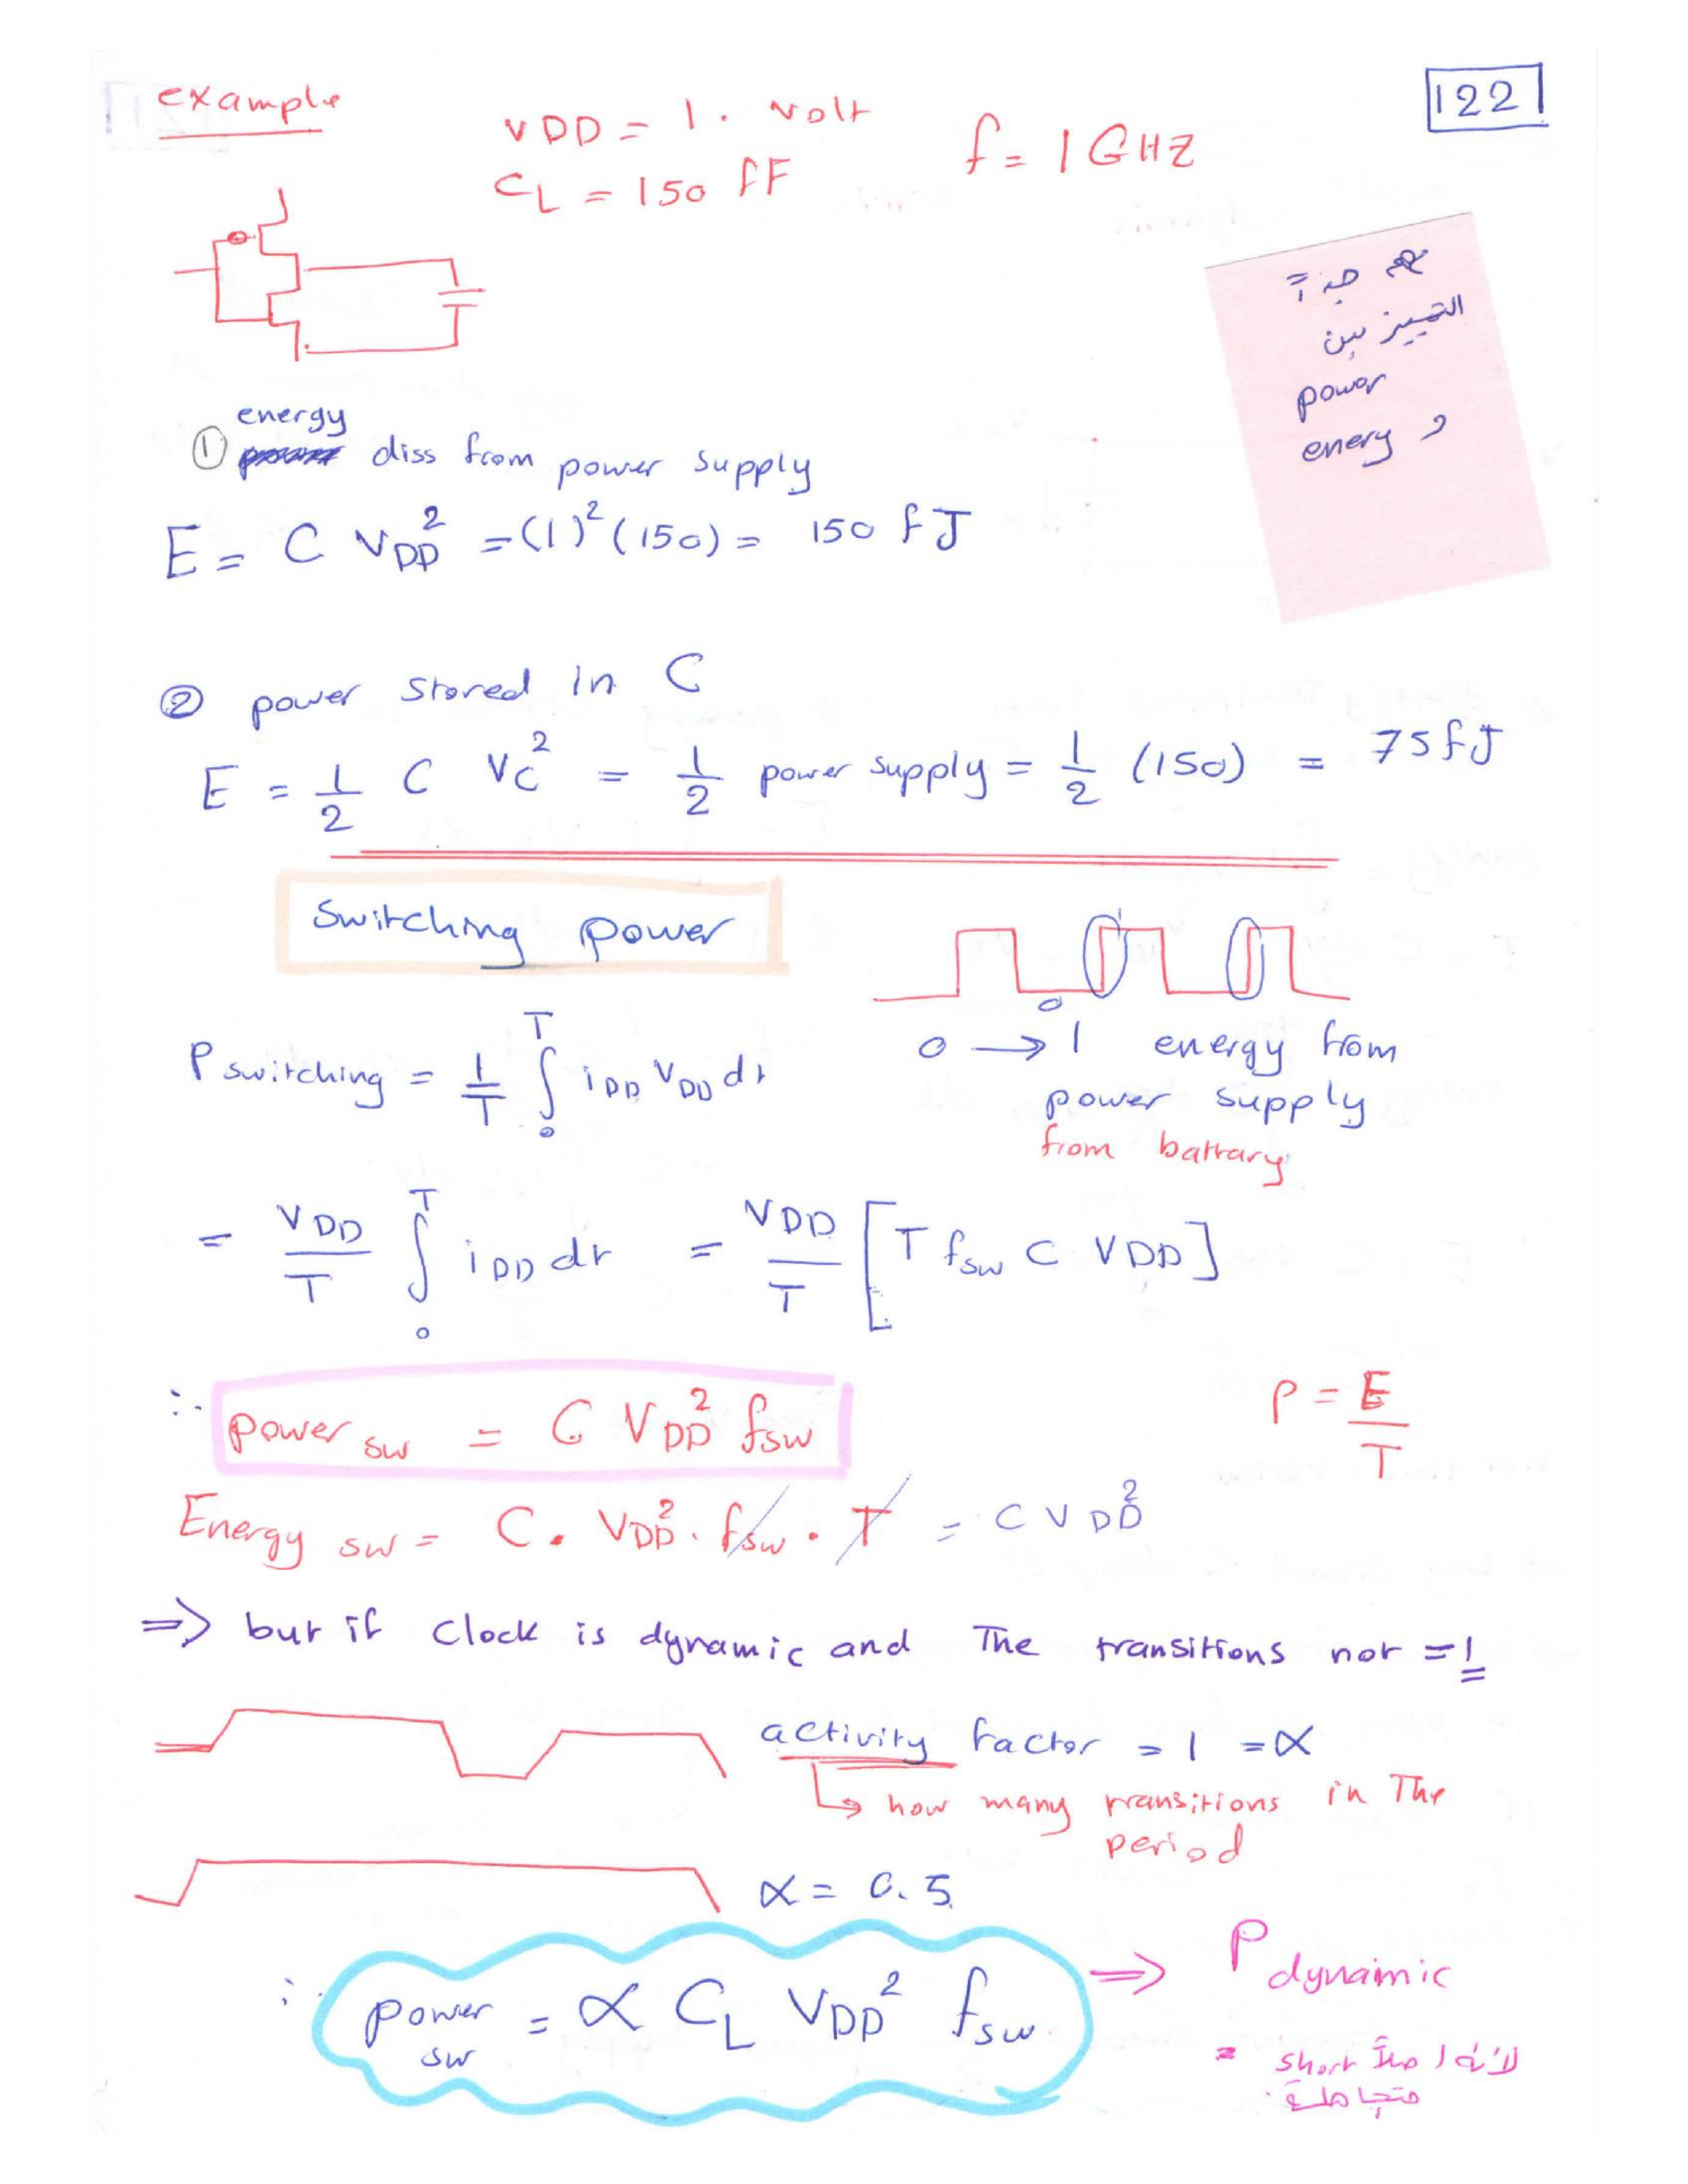 example
122
VDD = 1. volt
f = 1 GHZ
CL = 150 fF
مهم جداً
التمييز بين
power
و enery
energy
① diss from power supply
E = C VDD² = (1)² (150) = 150 fJ
② power stored in C
E = 1/2 C VC² = 1/2 power supply = 1/2 (150) = 75 fJ
Switching power
0 → 1 energy from
power supply
from battary
P switching = 1/T ∫₀ᵀ iDD VDD dt
= VDD/T ∫₀ᵀ iDD dt = VDD/T [T fsw C VDD]
∴ power sw = C VDD² fsw
P = E/T
Energy sw = C . VDD² . fsw . T = C VDD²
⇒ but if Clock is dynamic and The transitions not = 1
activity factor = 1 = α
↳ how many transitions in The
period
α = 0.5
∴ power sw = α CL VDD² fsw ⇒ P dynamic
= short
متجاهلة